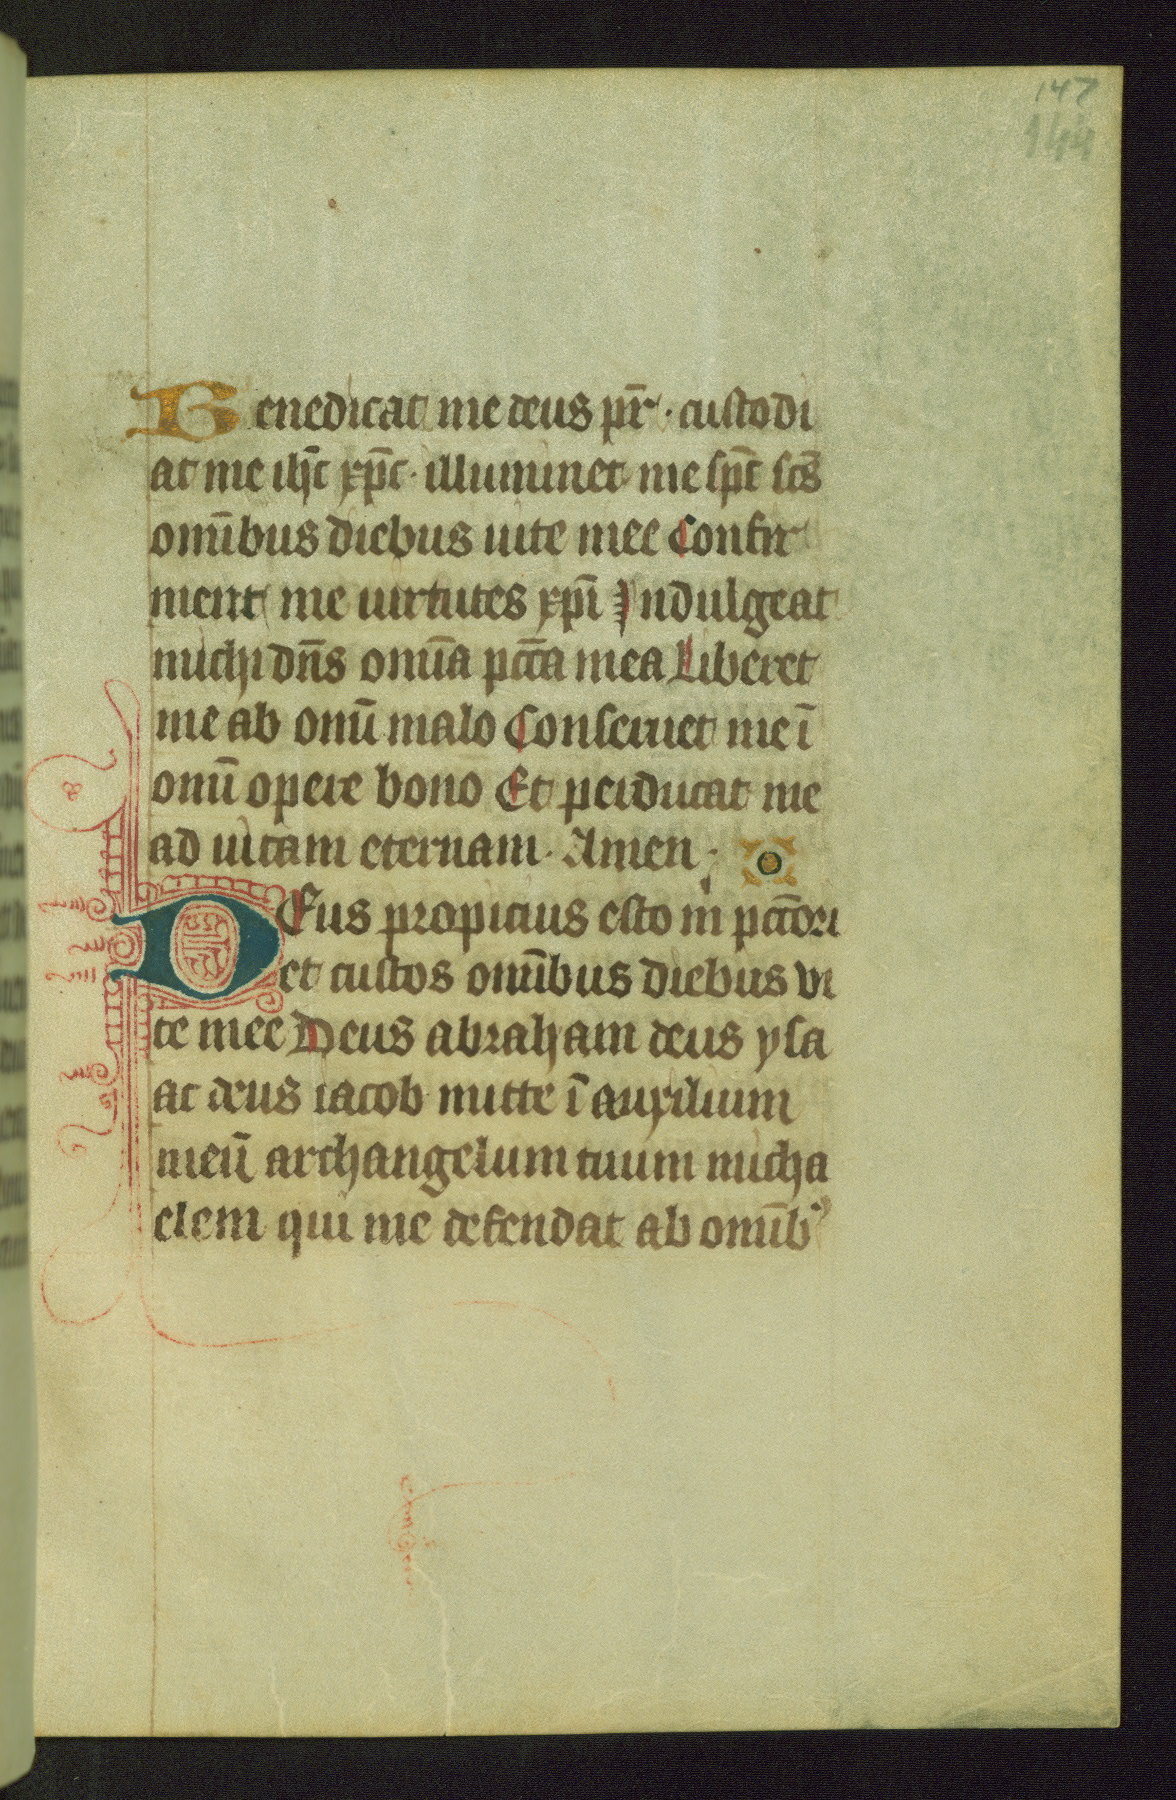 147
144
Benedicat me deus pr̄ · custodi
at me ihc̄ xp̄c · illuminet me sp̄c sc̄s
om̄ibus diebus uite mee Confir
ment me uirtutes xp̄i Indulgeat
michi dn̄s om̄ia pcc̄a mea Liberet
me ab om̄i malo Conseruet me ī
om̄i opere bono Et perducat me
ad uitam eternam · Amen ;
DEus propicius esto m̄ pcc̄ori
et custos om̄ibus diebus vi
te mee Deus abraham deus ysa
ac deus iacob mitte ī auxilium
meū archangelum tuum micha
elem qui me defendat ab om̄ib⁹